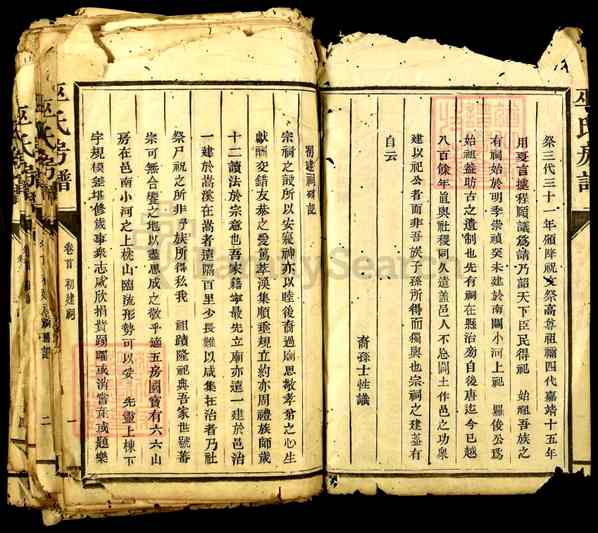 祭三代三十一年頒降祝文祭高尊祖禰四代嘉靖十五年
用夏言據程頤議爲請乃詔天下臣民得祀 始祖吾族之
有祠始於明季崇禎癸未建於南關小河上祀 羅俊公爲
始祖蓋昉古之遺制也先有祠在縣治旁自後唐迄今已越
八百餘年直與社稷同久遠蓋邑人不忘闢土作邑之功衆
建以祀公者而非吾族子孫所得而獨與也宗祠之建蓋有
自云
裔孫士性議
初建祠碑記
宗祠之設所以安寢神亦以睦後裔過廟思敬孝弟之心生
獻酬交錯友恭之愛篤萃渙集順垂規立約亦周禮族師歲
十二讀法於宗意也吾家籍寧最先立廟亦遠一建於邑治
一建於嵩溪在嵩者遠隔百里少長難以咸集在治者乃社
祭尸祝之所非吾族所得私我 祖蹟隆祀典吾家世號蕃
宗可無合饗之地以盡思成之敬乎適五房國寶有六六山
房在邑南小河之上枕山臨流形勢可以妥 先靈上棟下
宇規模堂堪修歲事衆志咸欣捐貲踴躍或消嘗產或題樂
巫氏房譜
卷首 初建祠
一
二
FamilySearch